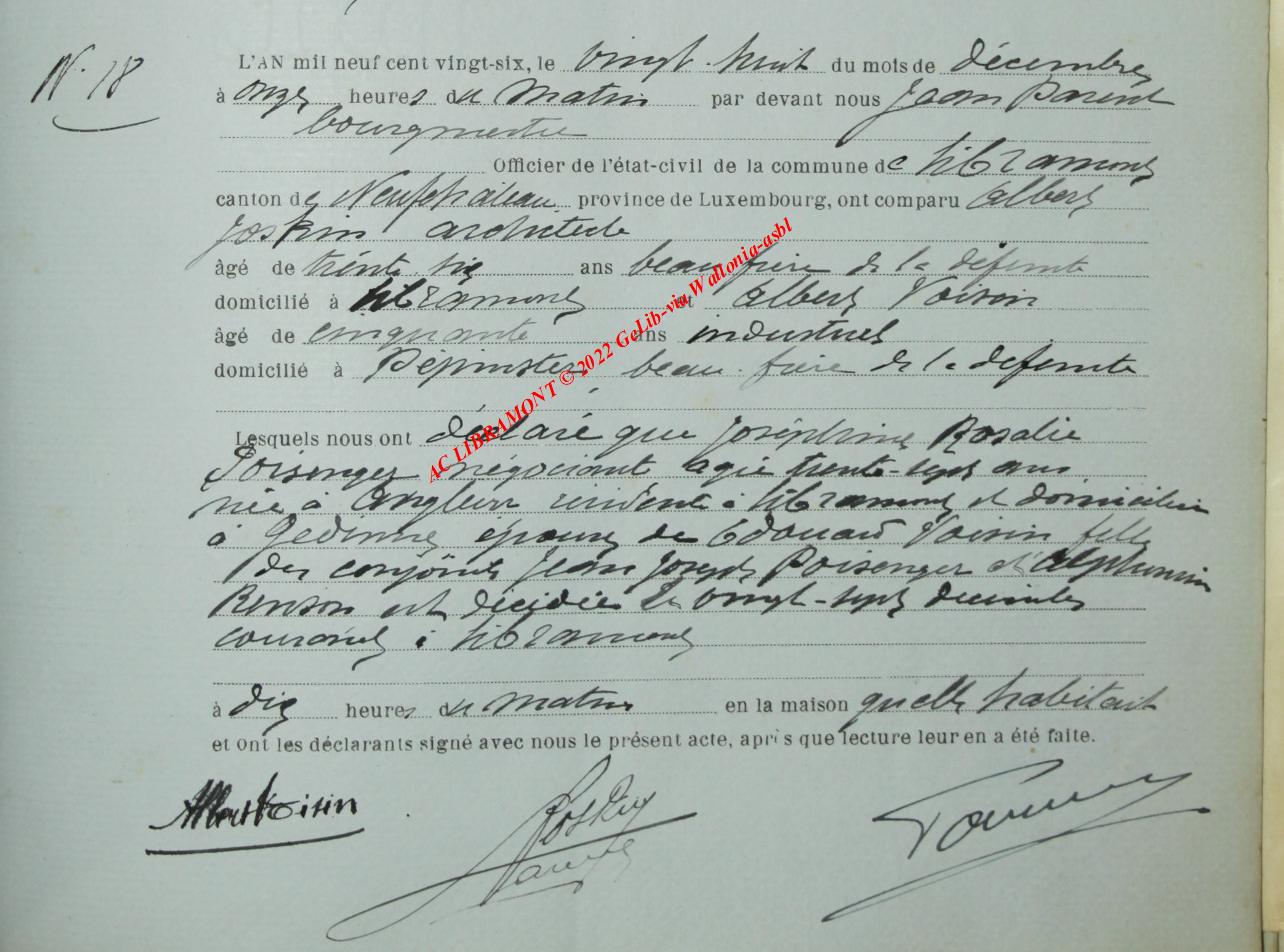 N. 18
L'AN mil neuf cent vingt-six, le vingt-huit du mois de décembre
à onze heures du matin par devant nous Jean Parent
bourgmestre
Officier de l'état-civil de la commune de Libramont
canton de Neufchâteau province de Luxembourg, ont comparu Albert
Joskin architecte
âgé de trente six ans beau frère de la défunte
domicilié à Libramont et Albert Voisin
âgé de cinquante ans industriel
domicilié à Pépinster beau-frère de la defunte
Lesquels nous ont déclaré que Joséphine Rosalie
Poisenger négociant agée trente-sept ans
née à Angleur résidente à Libramont et domiciliée
à Gedinne épouse de Edouard Voisin fille
des conjoints Jean Joseph Poisenger et Alphonsine
Renson est décédée le vingt-sept decembre
courant à Libramont
à dix heures du matin en la maison quelle habitait
et ont les déclarants signé avec nous le présent acte, après que lecture leur en a été faite.
Albert Voisin Joskin
AC LIBRAMONT © 2022 GeLib-via Wallonia-asbl